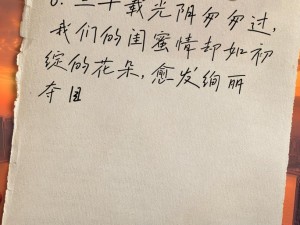 6. 三十载光阴匆匆过,
我们的闺蜜情却如初
绽的花朵,愈发绚丽
夺目